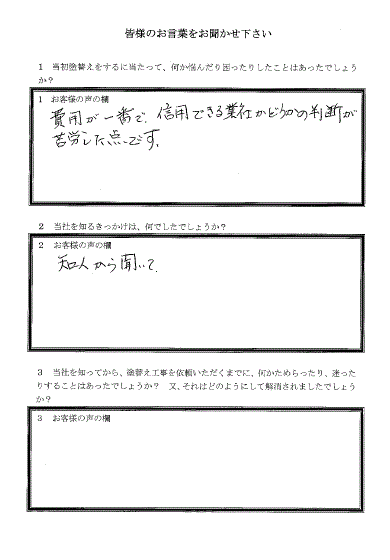 皆様のお言葉をお聞かせ下さい
1 当初塗替えをするに当たって、何か悩んだり困ったりしたことはあったでしょう
か?
1 お客様の声の欄
費用が一番で、信用できる業社かどうかの判断が
苦労した点です。
2 当社を知るきっかけは、何でしたでしょうか?
2 お客様の声の欄
知人から聞いて
3 当社を知ってから、塗替え工事を依頼いただくまでに、何かためらったり、迷った
りすることはあったでしょうか? 又、それはどのようにして解消されましたでしょう
か?
3 お客様の声の欄